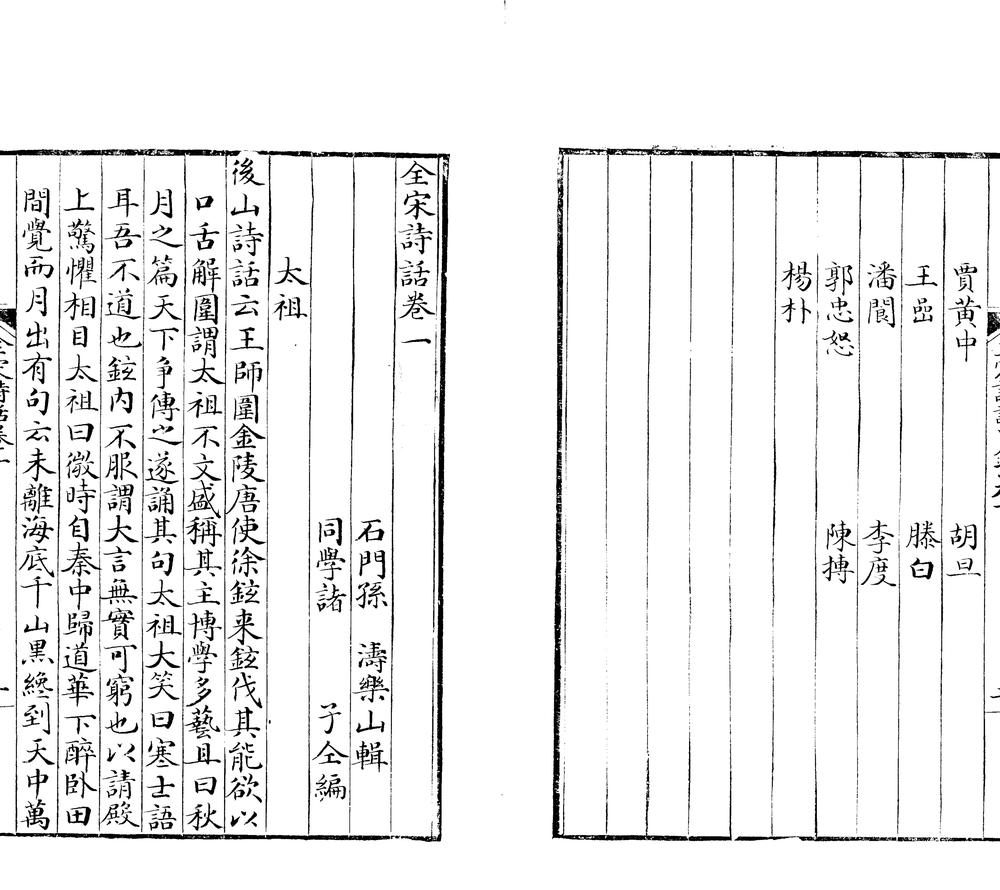 賈黄中
胡旦
王嵒
滕白
潘閬
李度
郭忠恕
陳摶
楊朴
全宋詩話卷一
石門孫 濤樂山輯
同學諸 子仝編
太祖
後山詩話云王師圍金陵唐使徐鉉来鉉伐其能欲以
口舌解圍謂太祖不文盛稱其主博學多藝且曰秋
月之篇天下争傳之遂誦其句太祖大笑曰寒士語
耳吾不道也鉉内不服謂大言無實可窮也以請殿
上驚懼相目太祖曰微時自秦中歸道華下醉卧田
間覺而月出有句云未離海底千山黒纔到天中萬